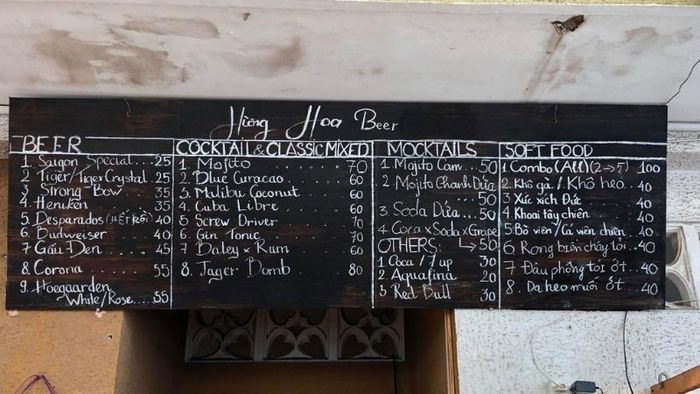 Hiêng Hoa Beer
BEER
1. Saigon Special... 25
2 Tiger/Tiger Crystal. 25
3. Strong-Bow..... 35
4. Heniken..... 35
5. Desparados (HẾT RỒI) 40
6. Budweiser..... 40
7 Gấu-Đen..... 45
8 Corona..... 55
9. Hoegaarden
White/Rose... 35
COCKTAIL & CLASSIC MIXED
1. Mojito..... 70
2. Blue Curacao..... 60
3. Malibu Coconut..... 60
4. Cuba Libre..... 60
5 Screw Driver..... 70
6. Gin Tonic..... 70
7 Baley x Rum..... 60
8. Jager Bomb..... 80
MOCKTAILS
1. Mojito Cam.. 50
2 Mojito Chanh Dừa
..... 50
3. Soda Dừa... 50
4 Cora x Soda x Grape
↳ 50
OTHERS:
1 Coca / 7 up 30
2 Aquafina 20
3 Red Bull 30
SOFT FOOD
1 Combo (All) (2→5) 100
2. Khô gà / Khô heo. 40
3 Xúc xích Đức 40
4 Khoai tây chiên 40
5 Bò viên / Cá viên chiên 40
6. Rong biển cháy tỏi.. 40
7 Đậu phộng tỏi ớt.. 40
8. Da heo muối ớt. 40